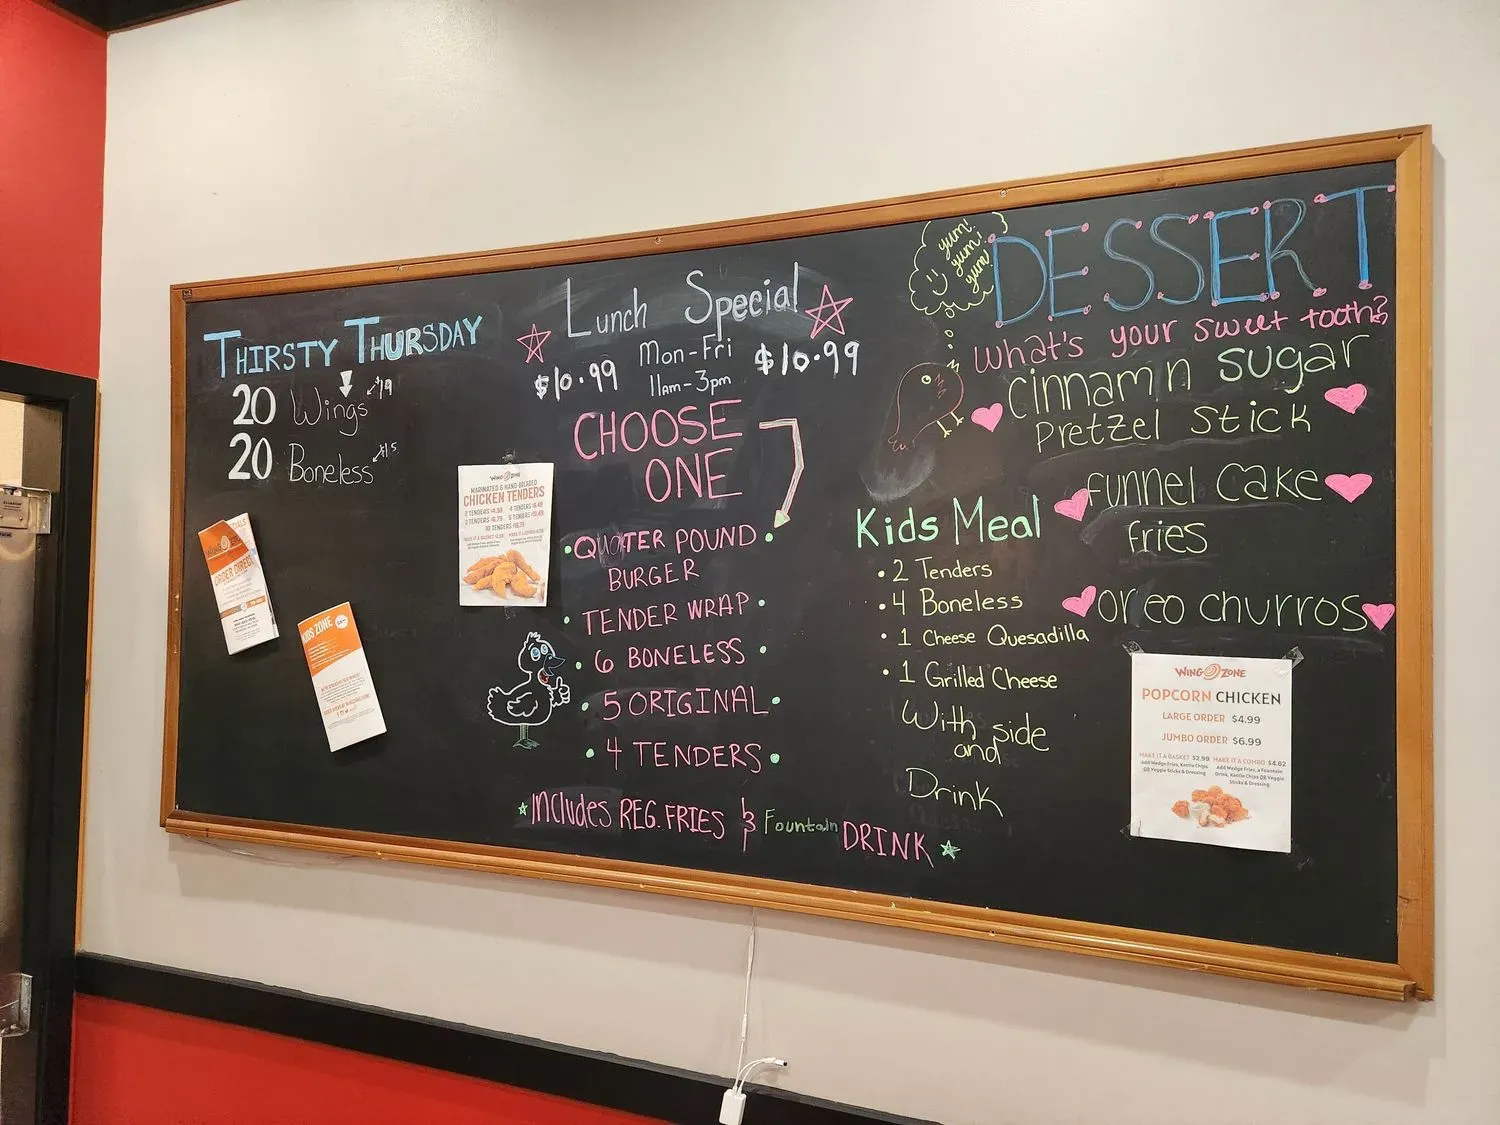 THIRSTY THURSDAY
20 Wings $19
20 Boneless $15
ORDER DIRECT
KIDS ZONE
WING ZONE
MARINATED & HAND-BREADED
CHICKEN TENDERS
2 TENDERS $4.99 4 TENDERS $8.49
10 TENDERS
Lunch Special
$10.99 Mon-Fri $10.99
11am-3pm
CHOOSE
ONE
QUATER POUND
BURGER
TENDER WRAP
6 BONELESS
5 ORIGINAL
4 TENDERS
INCludes REG. FRIES & Fountain DRINK
Kids Meal
2 Tenders
4 Boneless
1 Cheese Quesadilla
1 Grilled Cheese
With side
and
Drink
yum!
yum!
yum!
DESSERT
What's your sweet tooth?
cinnamon sugar
pretzel stick
funnel cake
fries
oreo churros
WING ZONE
POPCORN CHICKEN
LARGE ORDER $4.99
JUMBO ORDER $6.99
MAKE IT A BASKET $2.99 MAKE IT A COMBO $4.82
Add Wedge Fries, Kettle Chips Add Wedge Fries, a Fountain
OR Veggie Sticks & Dressing Drink, Kettle Chips OR Veggie
Sticks & Dressing